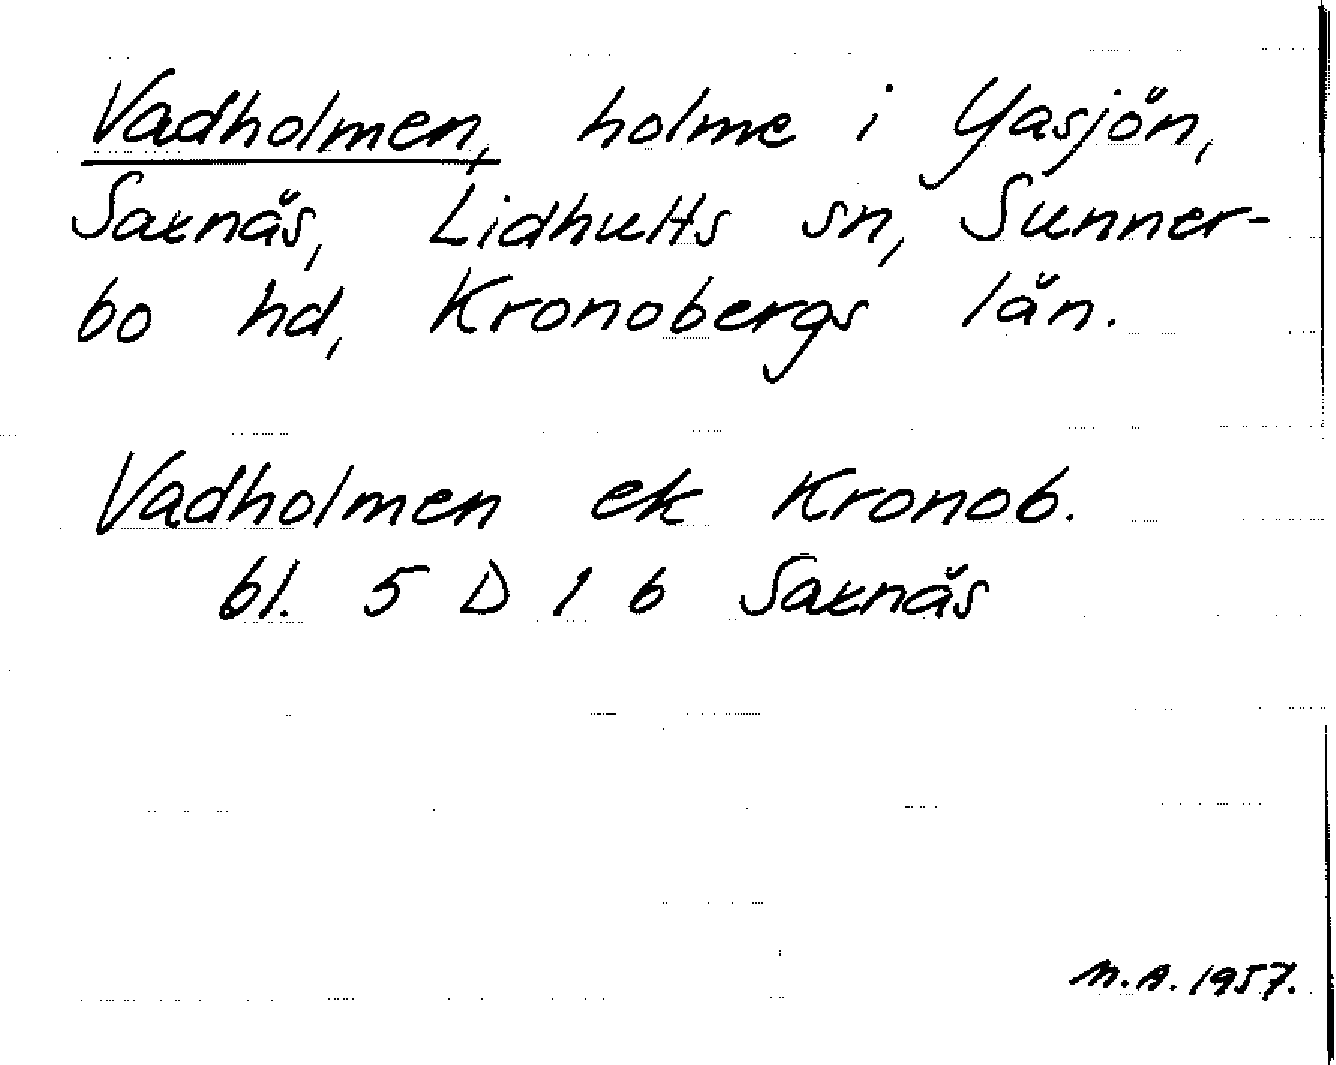 Vadholmen, holme i Yasjön,
Saxnäs, Lidhults sn, Sunner-
bo hd, Kronobergs län.
Vadholmen ek Kronob.
bl. 5 D 1 b Saxnäs
N.A. 1957.